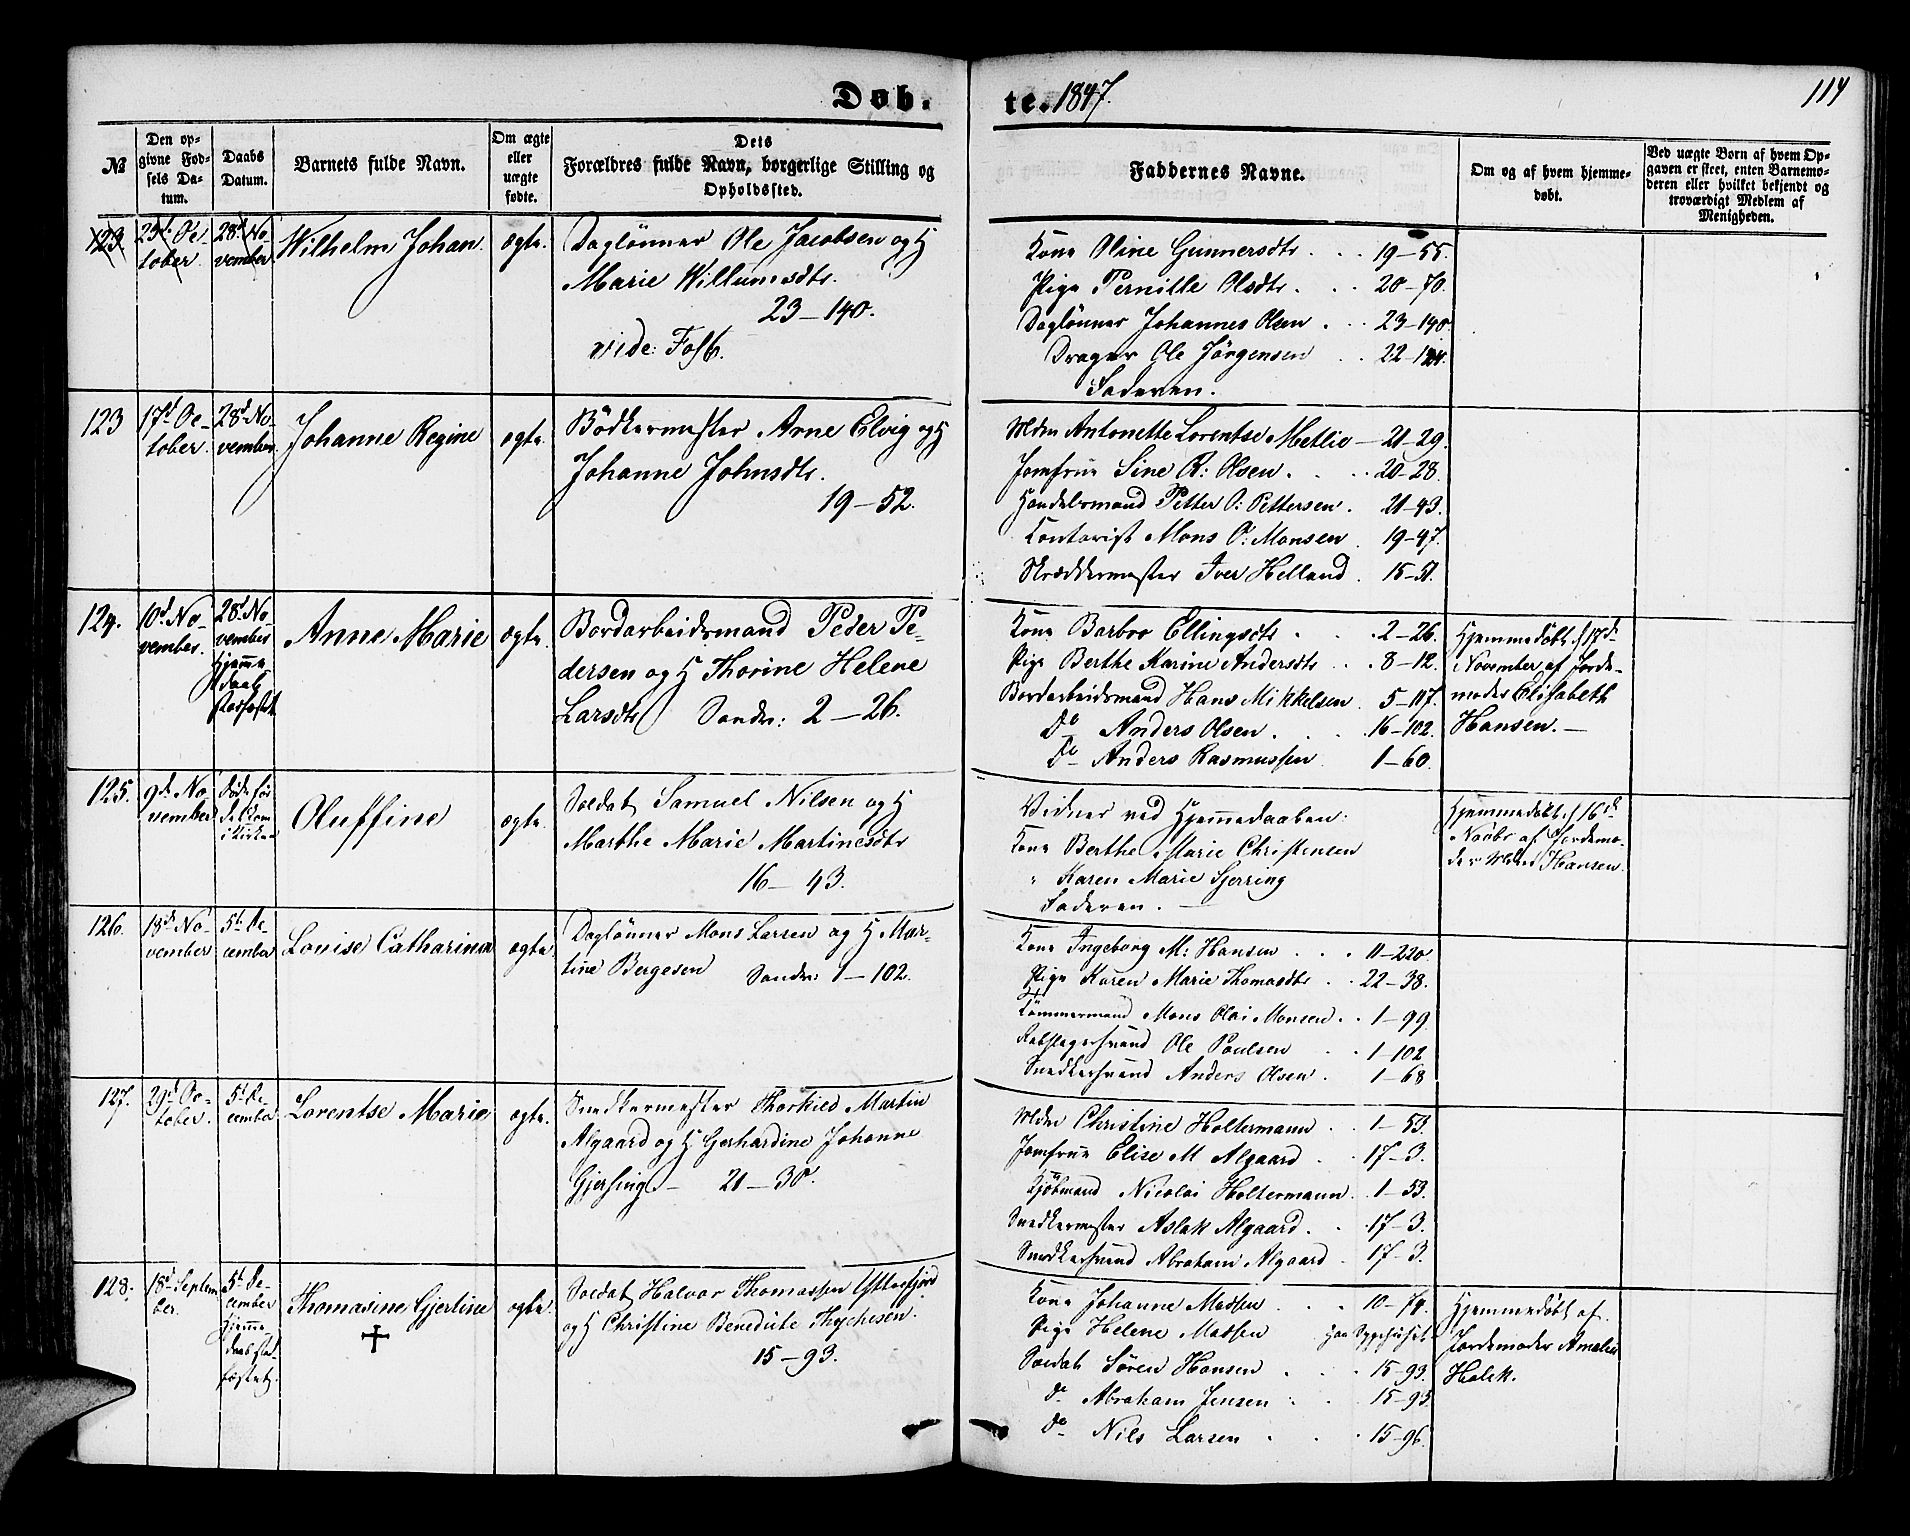 Døb.
te. 1847.
114
№
Den op-
givne Fød-
sels Da-
tum.
Daabs
Datum.
Barnets fulde Navn.
Om ægte
eller
uægte
fødte.
Dets
Forældres fulde Navn, borgerlige Stilling og
Opholdssted.
Faddernes Navne.
Om og af hvem hjemme-
døbt.
Ved uægte Børn af hvem Op-
gaven er skeet, enten Barnemo-
deren eller hvilket bekjendt og
troværdigt Medlem af
Menigheden.
123
25d Oc-
tober.
28d No-
vember
Wilhelm Johan.
ægte.
Daglønner Ole Jacobsen og H
Marie Willumsdtr.
23-140.
vide: Fol 6.
Kone Oline Gunnersdtr . . . 19-55.
Pige Pernille Olsdtr. . . 20-70.
Daglønner Johannes Olsen . . . 23-140.
Drager Ole Jörgensen . . 22-
Faderen.
123
17d Oc-
tober.
28d No-
vember.
Johanne Regine
ægte.
Bödkermester Arne Elvig og H
Johanne Johnsdtr.
19-52.
Mdm Antonette Lorentse Metlie - 21-29.
Jomfrue Sine R: Olsen . . . 20-28
Handelsmand Petter O: Pettersen . 21-43.
Contorist Mons O: Monsen . 19-47.
Skræddermester Iver Helland . 15-51.
124.
10d No-
vember.
28d No-
vember
Hjemme
daab
stadfæstet
Anne Marie
ægte.
Bordarbeidsmand Peder Pe-
dersen og H Thorine Helene
Larsdtr Sandv: 2-26.
Kone Barbro Ellingsdtr . . . 2-26.
Pige Berthe Karine Andersdtr . . 8-12.
Bordarbeidsmand Hans Mikkelsen . 5-117.
Do Anders Olsen . . . 16-102.
Do Anders Rasmussen . 1-60.
Hjemmedøbt d 17de
November af Jorde-
moder Elisabeth
Hansen. -
125.
9d No-
vember
døde før
det kom
i Kirken
Oluffine
ægte.
Soldat Samuel Nilsen og H
Marthe Marie Martinesdtr
16-43.
Vidner ved Hjemmedaaben.
Kone Berthe Marie Christensen
" Karen Marie Sjerring
Faderen. -
Hjemmedøbt d 16de
Novbr af Jordemo-
der Mdm Hansen.
126.
18d No-
vember
5te De-
cember
Louise Catharina
ægte.
Daglønner Mons Larsen og H Mar-
tine Bergesen Sandv: 1-102.
Kone Ingeborg M: Hansen . . . 11-220.
Pige Karen Marie Thomasdtr . . 22-38.
Tømmermand Mons Olai Monsen . . 1-99.
Rebslagersvend Ole Poulsen . . 1-102
Snedkersvend Anders Olsen . . 1-68
127.
29d Oc-
tober.
5te De-
cember
Lorentse Marie
ægte.
Snedkermester Thorkild Martin
Algaard og H Gerhardine Johanne
Gjersing - 21-30.
Mdm Christine Holtermann . . 1-53.
Jomfrue Elise M Algaard . . 17-3.
Kjöbmand Nicolai Holtermann . . 1-53.
Snedkermester Aslak Algaard . . 17-3.
Snedkersvend Abraham Algaard . 17-3.
128.
18d Septem
ber.
5te De-
cember
Hjemme
daab stad-
fæstet.
Thomasine Gjertine
✝
ægte.
Soldat Halvor Thomassen Yttrefjord
og H Christine Benedicte Thychesen.
15-93.
Kone Johanne Madsen . . . 10-74.
Pige Helene Madsen paa Sygehuset.
Soldat Sören Hansen . . . 15-93.
do Abraham Jensen . . . 15-95
do Nils Larsen . . . 15-96.
Hjemmedøbt af
Jordemoder Amalia
Holck.